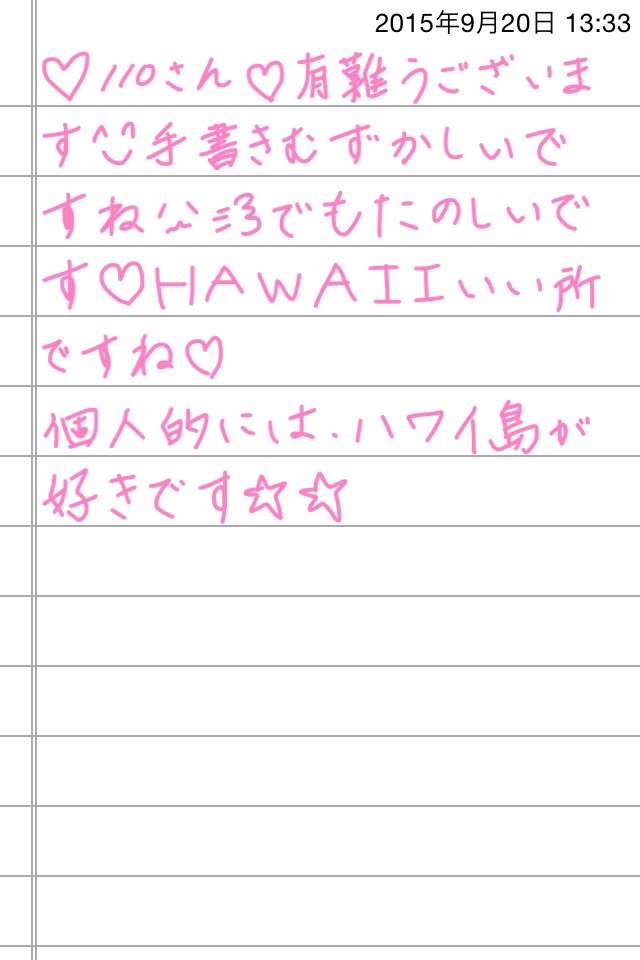 2015年9月20日 13:33
♡110さん♡有難うございま
す^^手書きむずかしいで
すね^^;でもたのしいで
す♡HAWAIIいい所
ですね♡
個人的には、ハワイ島が
好きです☆☆